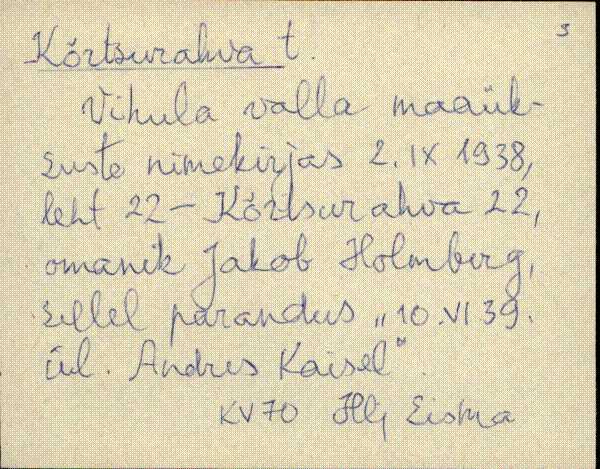 3
Kõrtsurahva t.
Vihula valla maaük-
suste nimekirjas 2. IX 1938,
leht 22 - Kõrtsurahva 22,
omanik Jakob Holmberg,
sellel parandus „10. VI 39.
ül. Andres Kaisel".
KV70 Hlj Eisma